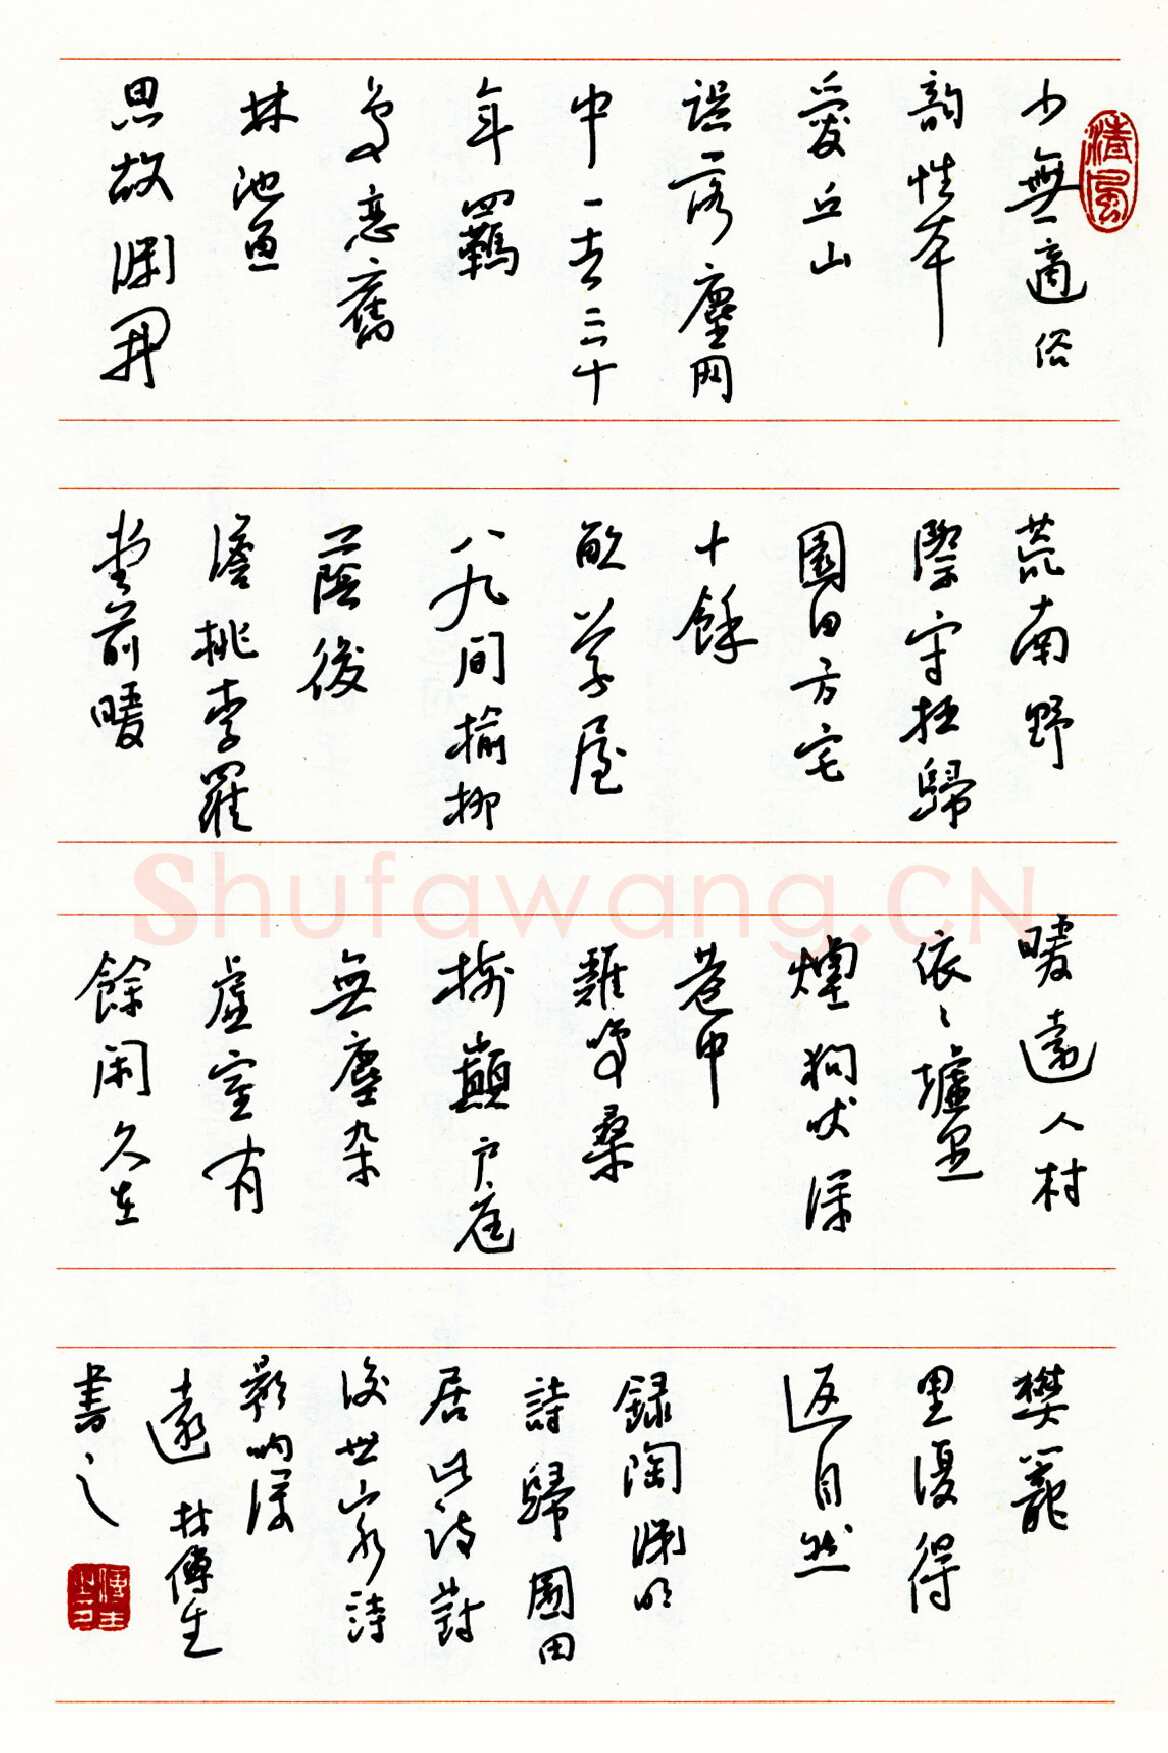 清風
少無適俗
韵性本
愛丘山
誤落塵网
中一去三十
年羈
鳥恋舊
林池鱼
思故渊開
荒南野
際守拙歸
園田方宅
十餘
畝草屋
八九间榆柳
蔭後
簷桃李羅
堂前曖
Shufawang.CN
曖遠人村
依〻墟里
煙狗吠深
巷中
雞鳴桑
樹巔户庭
無塵杂
虚室有
餘闲久在
樊籠
里復得
返自然
録陶渊明
詩歸園田
居此詩對
後世山水詩
影响深
遠 林傅生
書之